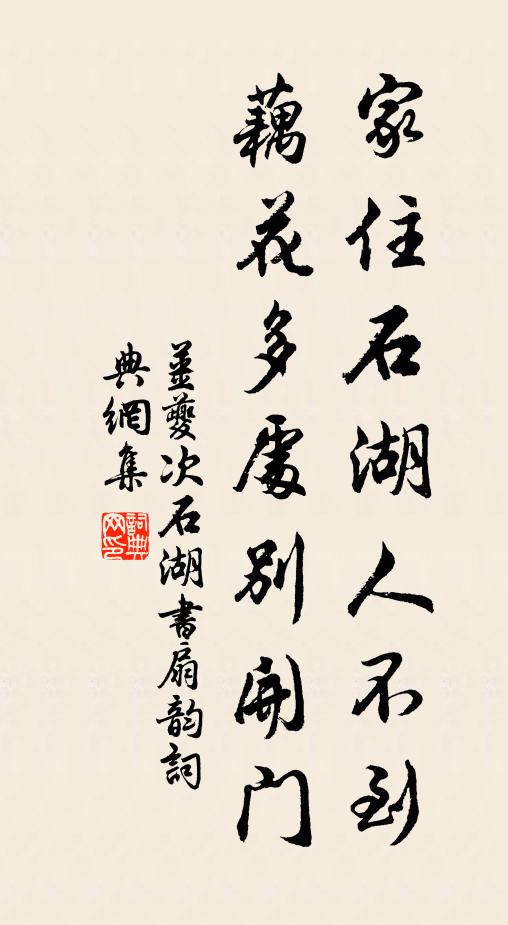 家住石湖人不到
藕花多處別開門
姜夔次石湖書扇韵詞
典網集
詞典網印